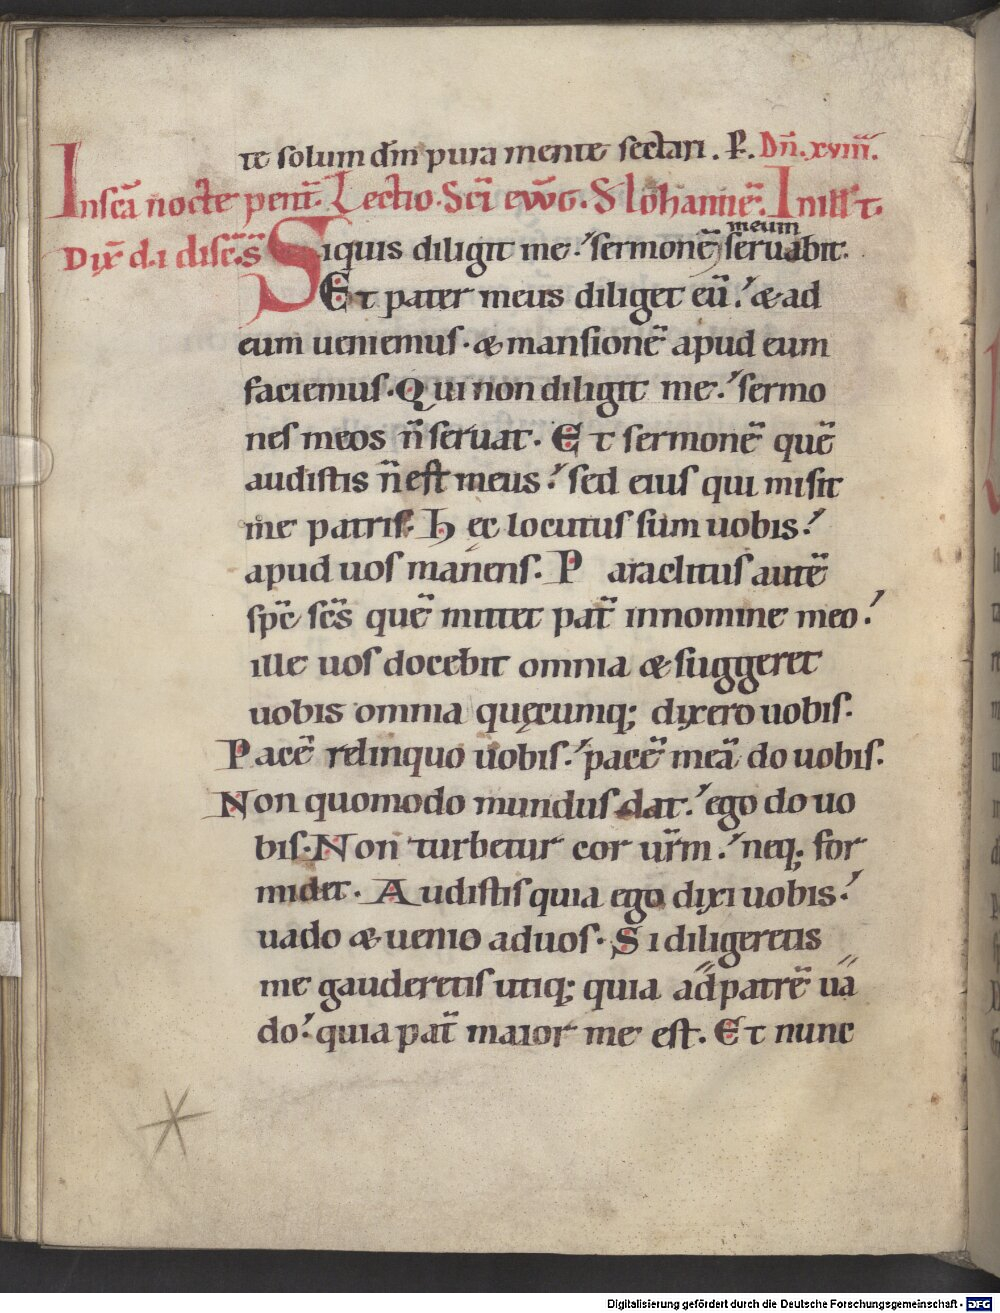 te solum dm̄ pura mente sectari. P̄. Dn̄. xviiii.
In scā nocte pent̄. Lectio. Scī ewḡ. S Iohannē. In ill̄ t.
Dix̄ d. i disc̄.s̄ Siquis diligit me. sermonē meum seruabit.
Et pater meus diliget eū. & ad
eum ueniemus. & mansionē apud eum
faciemus. Qui non diligit me. sermo
nes meos n̄ seruat. Et sermonē quē
audistis n̄ est meus. sed eius qui misit
me patris. Hec locutus sum uobis.
apud uos manens. Paraclitus autē
sp̄c sc̄s quē mittet pat̄ in nomine meo.
ille uos docebit omnia & suggeret
uobis omnia quęcumq; dixero uobis.
Pacē relinquo uobis. pacē meā do uobis.
Non quomodo mundus dat. ego do uo
bis. Non turbetur cor ur̄m. neq; for
midet. Audistis quia ego dixi uobis.
uado & uenio ad uos. Si diligeretis
me gauderetis utiq; quia ad patrē ua
do. quia pat̄ maior me est. Et nunc
Digitalisierung gefördert durch die Deutsche Forschungsgemeinschaft - DFG